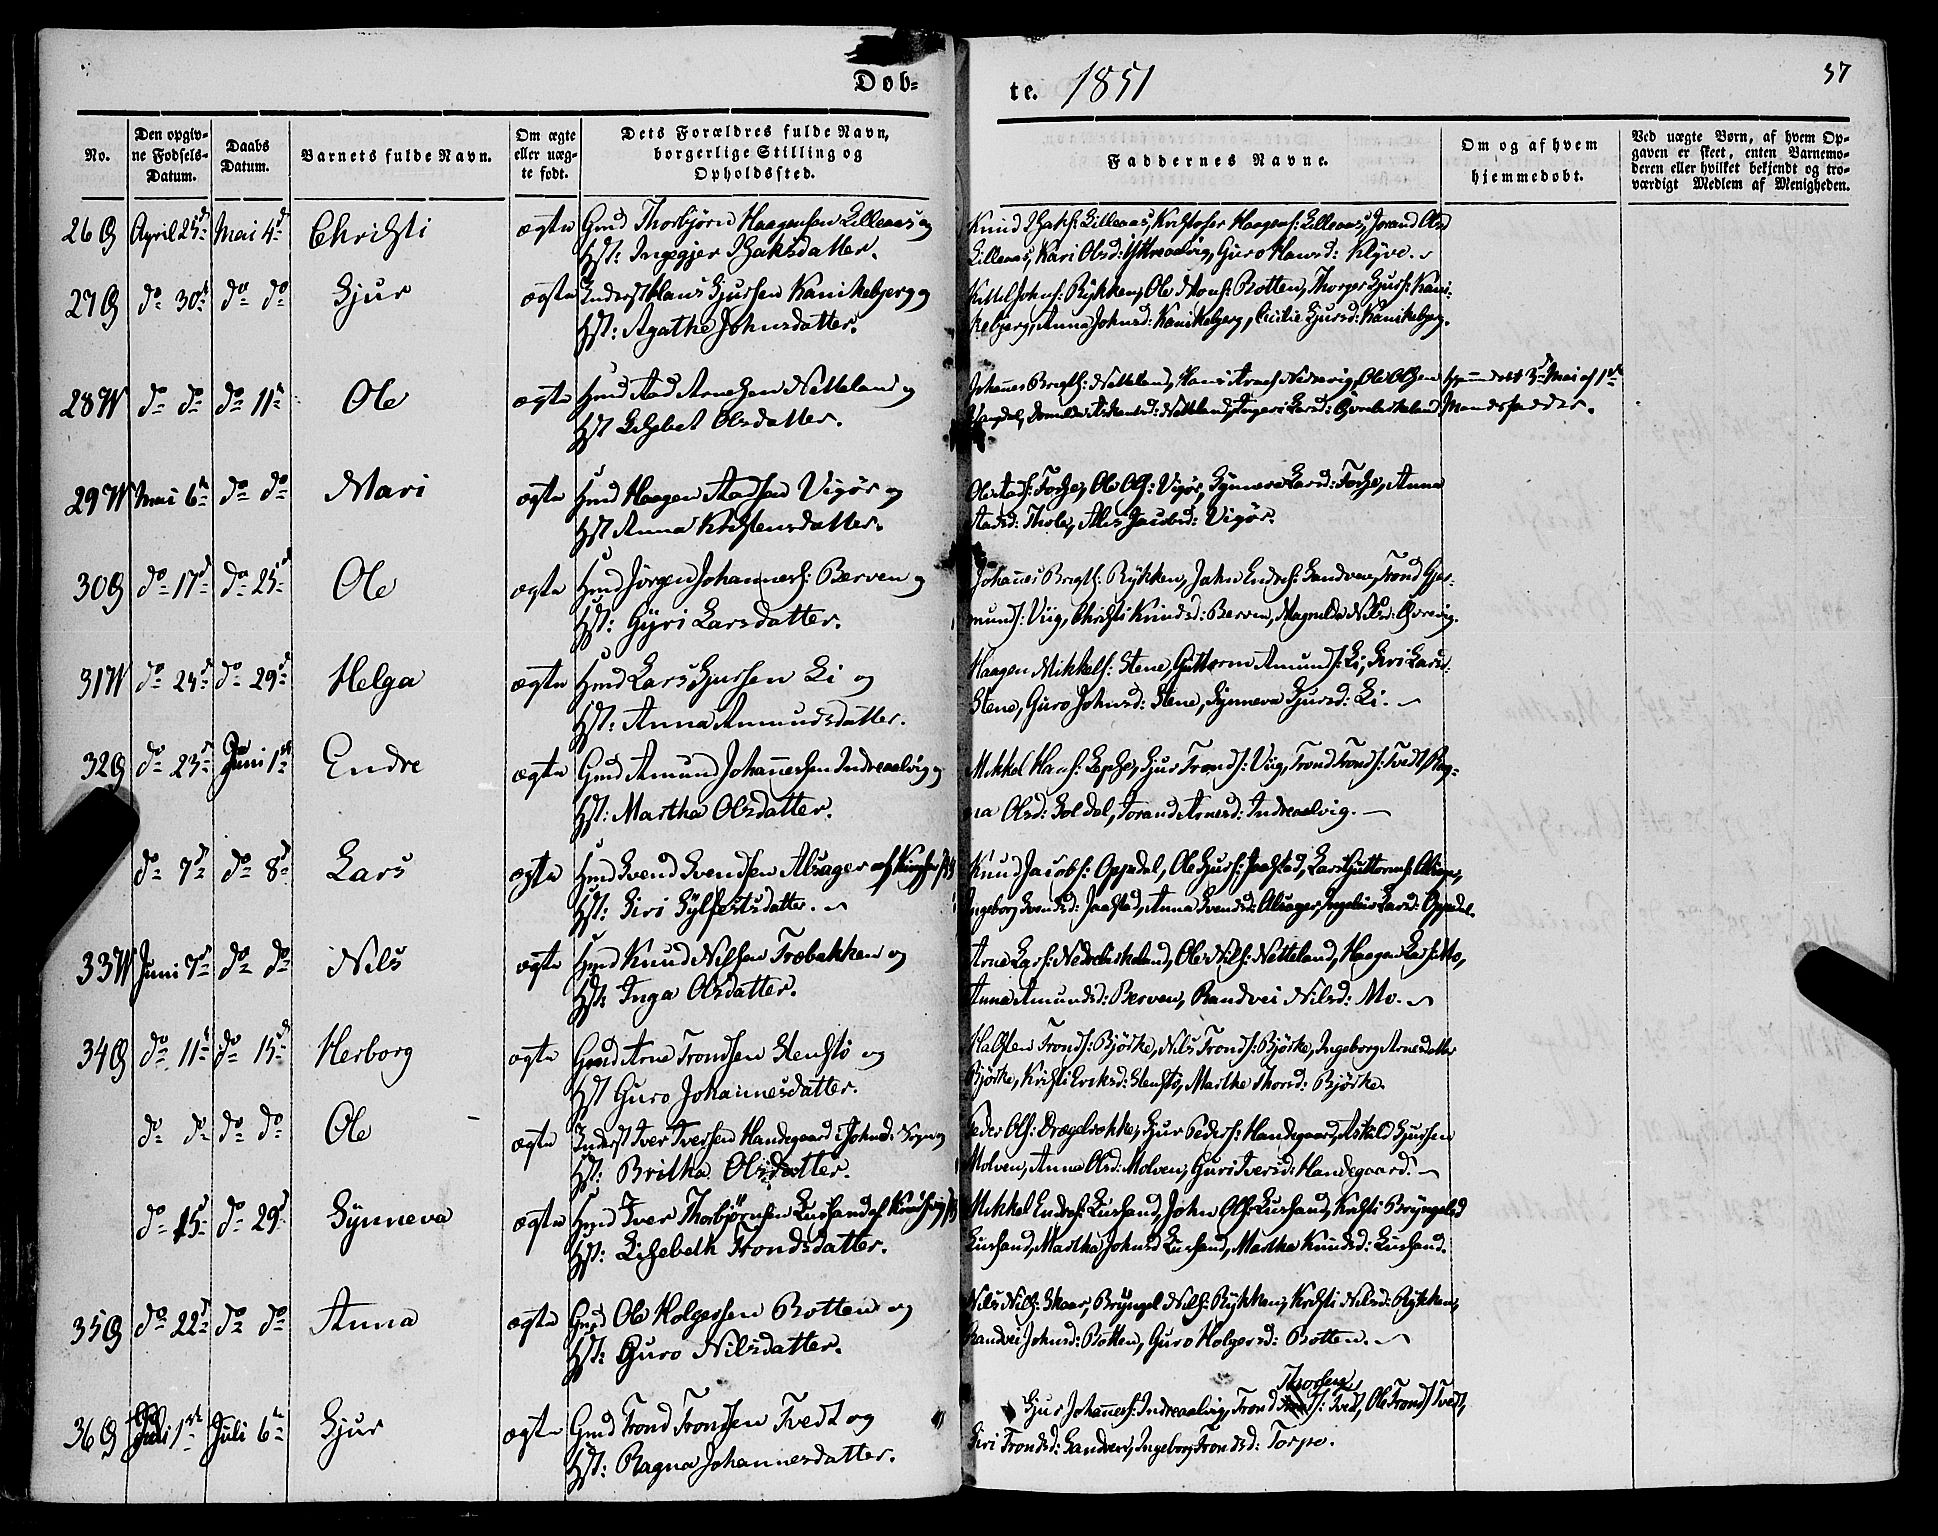 Døb-
te. 1851
37
No.
Den opgiv-
ne Fødsels-
Datum.
Daabs
Datum.
Barnets fulde Navn.
Om ægte
eller uæg-
te født.
Dets Forældres fulde Navn,
borgerlige Stilling og
Opholdssted.
Faddernes Navne.
Om og af hvem
hjemmedøbt.
Ved uægte Børn, af hvem Op-
gaven er skeet, enten Barnemo-
deren eller hvilket bekjendt og tro-
værdigt Medlem af Menigheden.
26 G April 25d Mai 4d Christi ægte Gmd Thorbjörn Haagensen Lilleaas og
Hst: Ingegjer Isaksdatter.
Knud Isaks: Lilleaas, Kristofer Haagens: Lilleaas, Jorand Olsd
Lilleaas, Kari Olsd: Ytreaalvig, Guro Hansd: Klyve.
27 G do 30te do do Sjur ægte Inderst Hans Sjursen Kanikebjerg og
Hst: Agatha Johnsdatter.
Kittel Johns: Rykken, Ole Hans: Botten, Thorger Sjurs: Kani-
kebjerg, Anna Johnsd: Kanikebjerg, Cicilie Sjursd: Kanikebjerg.
28 W do do do 11te Ole ægte Hmd Aad Arnesen Netteland og
Hst Lisebet Olsdatter.
Johannes Brigts: Netteland, Hans Arnes Nedrevig, Ole Olsen
Netteland
hjemmedøbt 3die Mai af 1ste
Mandsfadder.
29 W Mai 6te do do Mari ægte Hmd Haagen Aadsen Vigör og
Hst Anna Kristensdatter.
Ole Aads: Torse, Ole Ols: Vigör, Synneva Larsd: Torse, Anna
Aadsd: Thole, Alis Jacobsd: Vigör.
30 G do 17d do 25d Ole ægte Hmd Jörgen Johanness: Berven og
Hst: Gyri Larsdatter.
Johannes Brigts: Rykken, John Endres: Sandven, Trond Gjer-
munds: Viig, Christi Knudsd: Berven, Magnilda Nilsd: Övrevig.
31 W do 24d do 29d Helga ægte Hmd Lars Sjursen Li og
Hst: Anna Amundsdatter.
Haagen Mikkels: Stene, Guttorm Amunds: Li, Siri Larsd:
Stene, Guro Johnsd: Stene, Synneva Sjursd: Li.
32 G do 23d Juni 1ste Endre ægte Gmd Amund Johannessen Indreaalvig og
Hst: Martha Olsdatter.
Mikkel Hans: Lepse, Sjur Tronds: Viig, Trond Tronds: Tvedt, Rag-
na Olsd: Soldal, Jorand Arnesd: Indreaalvig.
do 7d do 8d Lars ægte Hmd Svend Svendsen Alsager
Hst: Siri Sylfestsdatter.
Knud Jacobs: Oppedal, Ole Sjurs: Jaastad, Lars Guttorms: Alsager,
Ingeborg Svendsd: Jaastad, Anna Svendsd: Alsager, Larsd: Oppedal.
33 W Juni 7d do do Nils ægte Hmd Knud Nilsen Træbakken og
Hst: Inga Olsdatter.
Arne Lars: Nedrebirkeland, Ole Nils: Netteland, Haagen Lars: Mo,
Anna Amundsd: Berven, Randvei Nilsd: Mo.
34 G do 11te do 15d Herborg ægte Gmd Arne Trondsen Stenstö og
Hst Guro Johannesdatter.
Halsten Tronds: Björke, Nils Tronds: Björke, Ingeborg Arnesdatter
Björke, Kristi Eriksd: Stenstö, Martha Thorsd: Björke.
do do do do Ole ægte Inderst Iver Iversen Handegaard
Hst: Britha Olsdatter.
Peder Ols: , Sjur Peders: Handegaard, Askild Sjursen
Molven, Anna Olsd: Molven, Guri Iversd: Handegaard.
do 15d do 29d Synneva ægte Hmd Iver Thorbjörnsen Lussand
Hst: Lisebeth Trondsdatter.
Mikkel Endres: Lussand, John Ols: Lussand, Kristi Bryngelsd
Lussand, Martha Johnsd Lussand, Martha Knudsd: Lussand.
35 G do 22d do do Anna ægte Gmd Ole Holgersen Botten og
Hst: Guro Nilsdatter.
Nils Nils: Skaar, Bryngel Nils: Rykken, Kristi Nilsd: Rykken,
Randvei Johnsd: Botten, Guro Holgersd: Botten.
36 G Juli 1ste Juli 6te Sjur ægte Gmd Trond Trondsen Tvedt og
Hst: Ragna Johannesdatter.
Sjur Johannes: Indreaalvig, Trond Tved, Ole Tronds Tvedt,
Siri Trondsd: Sandven, Ingeborg Trondsd: Torpe.